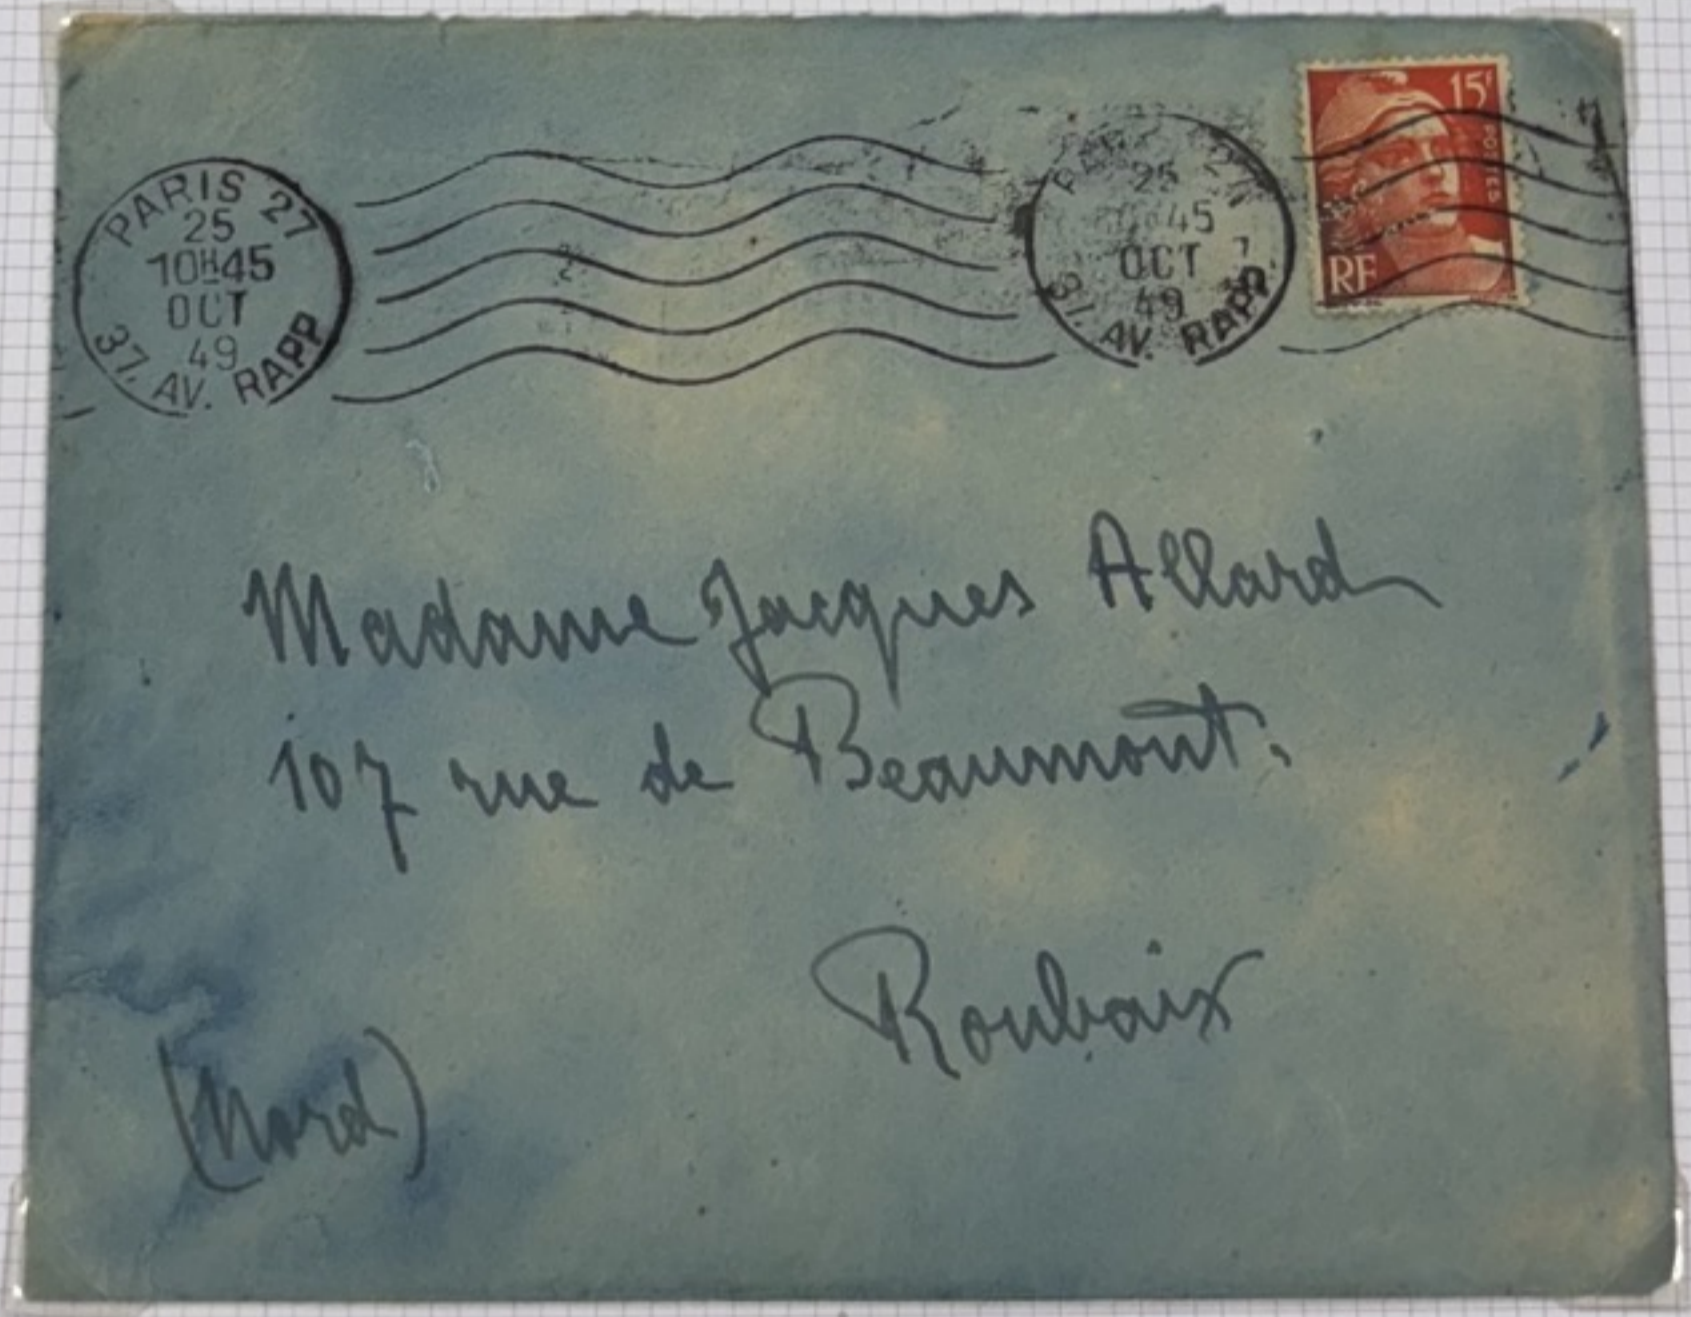 PARIS 27
25
10H45
OCT
49
37, AV. RAPP
25
45
OCT
49
37, AV. RAPP
15f
POSTES
RF
Madame Jacques Allard
107 rue de Beaumont.
Roubaix
(Nord)